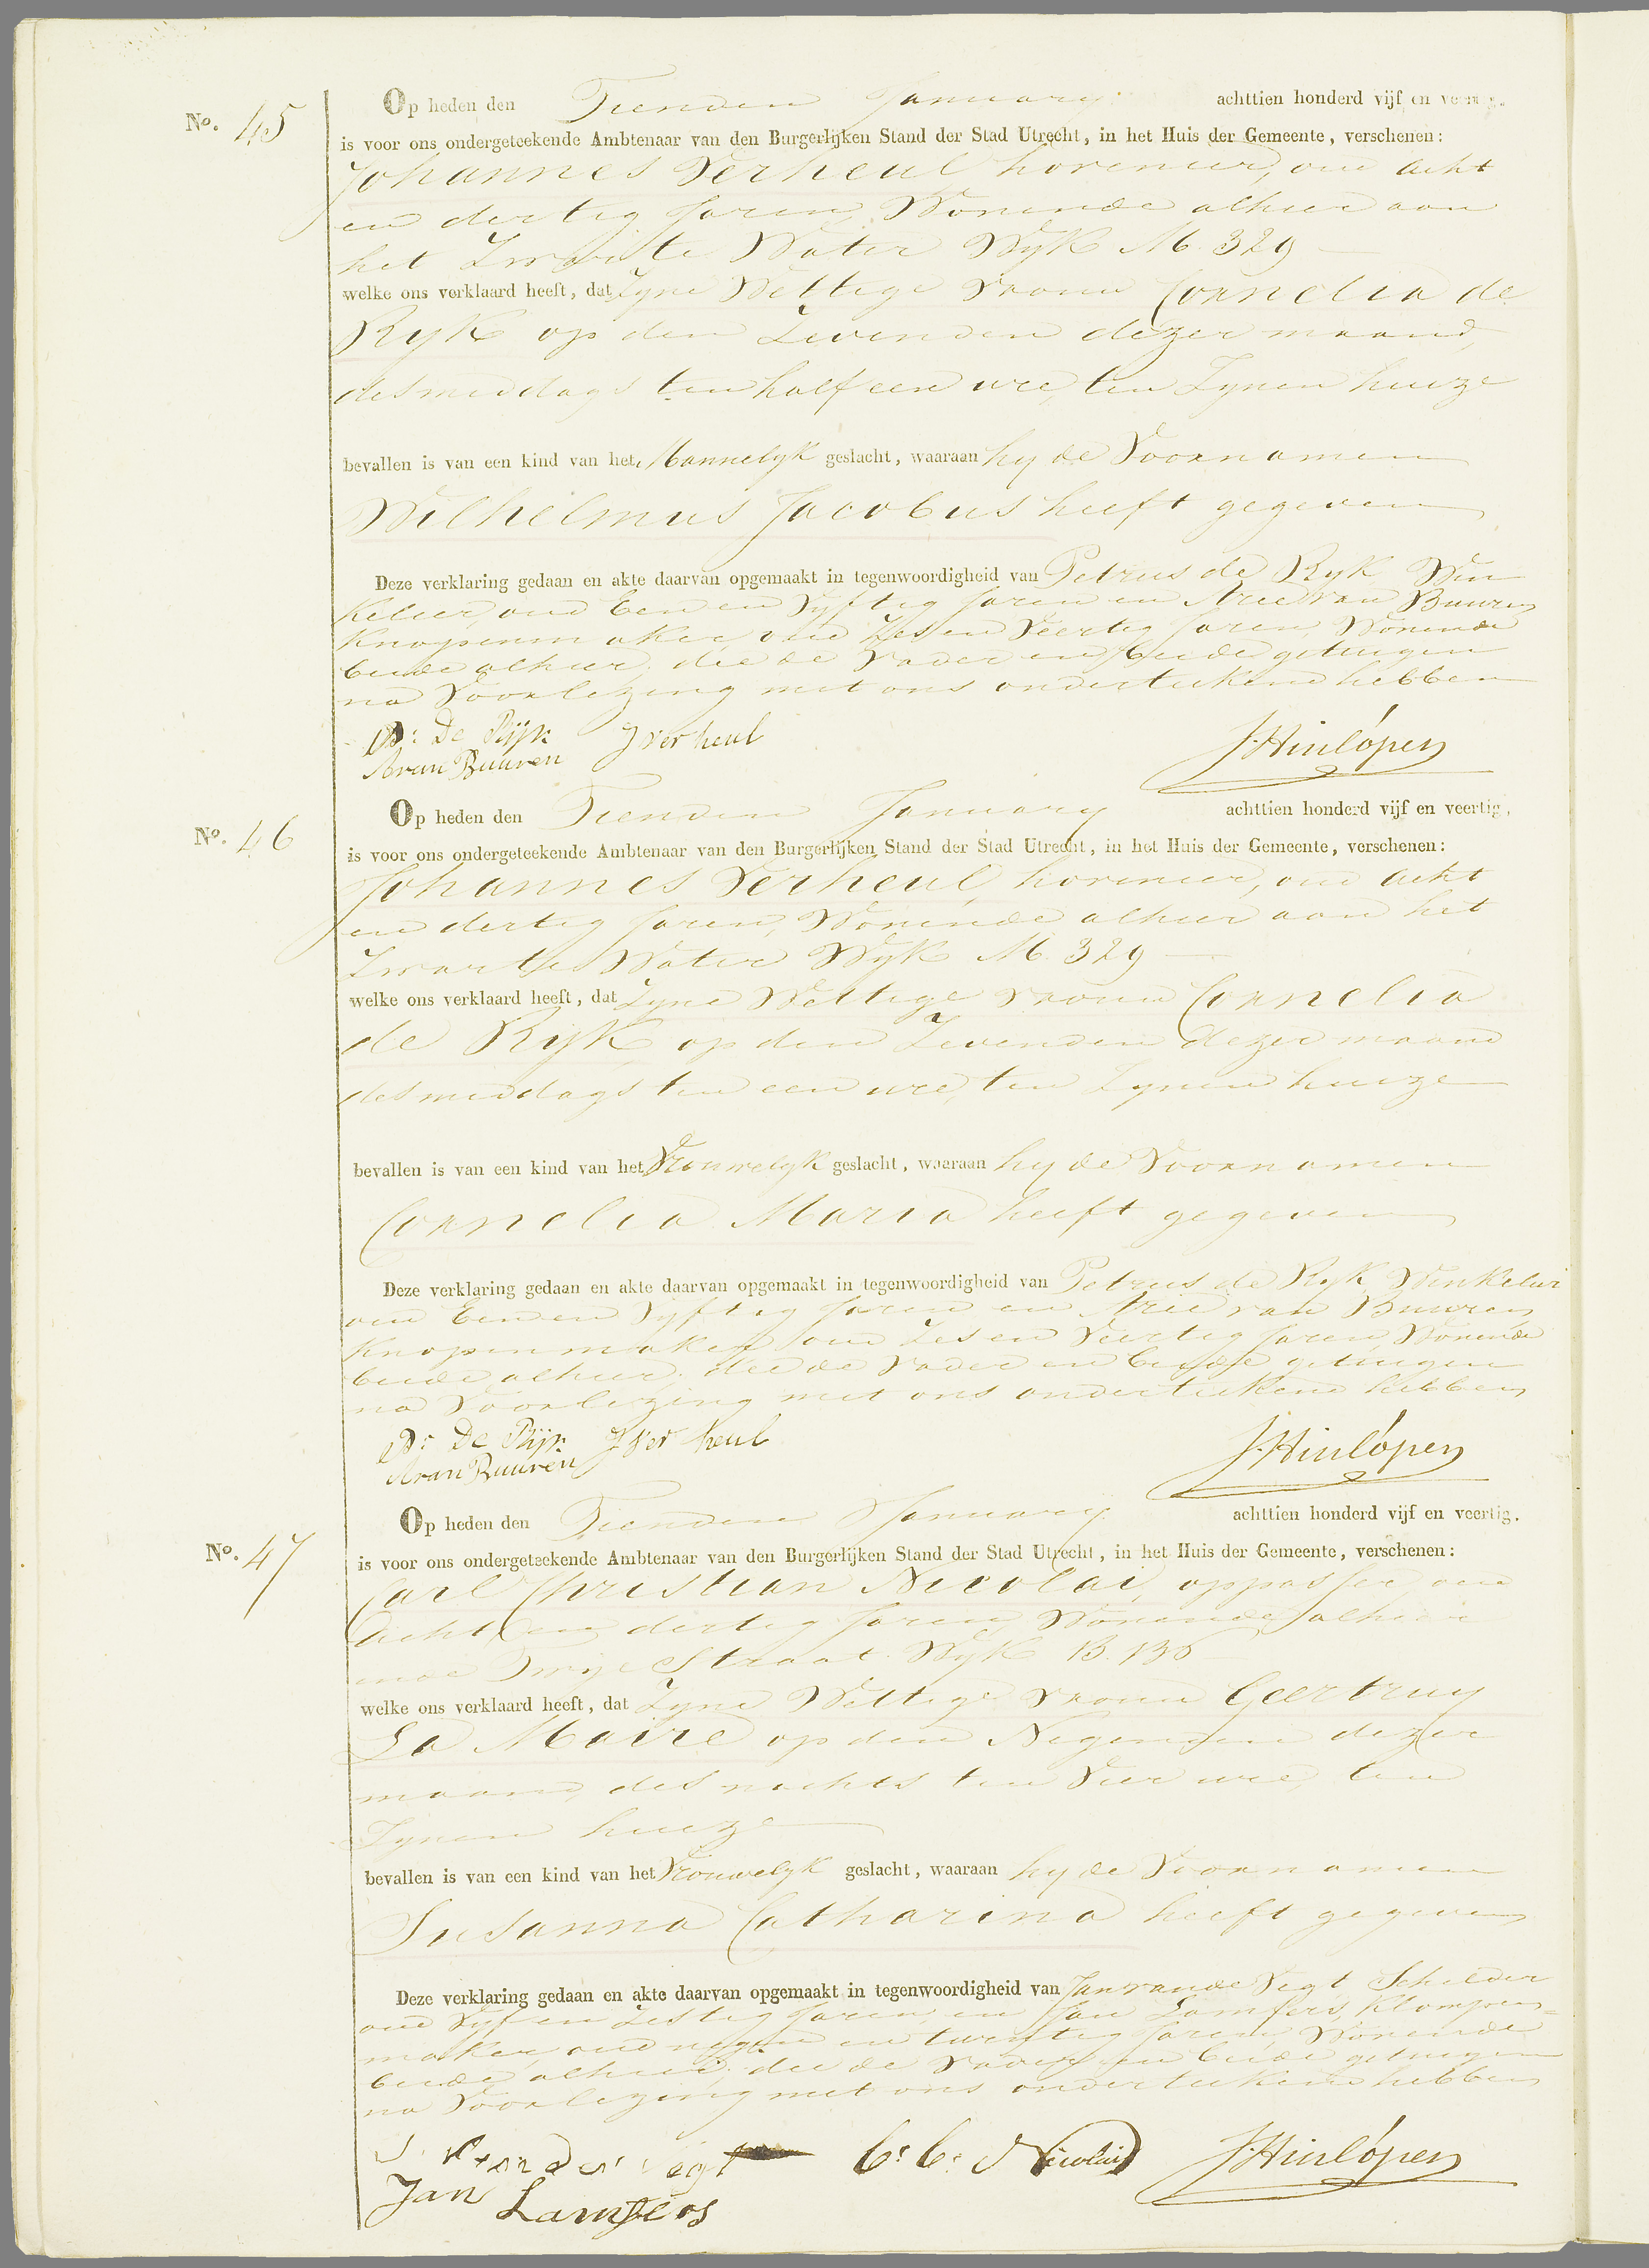 No. 45
Op heden den Tienden January achttien honderd vijf en veertig.
is voor ons ondergeteekende Ambtenaar van den Burgerlijken Stand der Stad Utrecht, in het Huis der Gemeente, verschenen:
Johannes Verheul hovenier, oud acht
en dertig Jaren, Wonende alhier aan
het Zwarte Water Wyk M. 329
welke ons verklaard heeft, dat Zyne Wettige Vrouw Cornelia de
Ryk op den Zevenden dezer maand,
des middags ten half een ure, ten Zynen huize
bevallen is van een kind van het Mannelyk geslacht, waaraan hy de Voornamen
Wilhelmus Jacobus heeft gegeven
Deze verklaring gedaan en akte daarvan opgemaakt in tegenwoordigheid van Petrus de Ryk Win
kelier, oud Een en Vyftig Jaren en Arie van Buuren
Knopenmaker, oud Zes en Veertig Jaren, Wonende
beide alhier, die de Vader en beide getuigen
na Voorlezing met ons onderteekend hebben
Ps: De Rijk J Verheul J. Hinlópen
A van Buuren
No. 46
Op heden den Tienden January achttien honderd vijf en veertig.
is voor ons ondergeteekende Ambtenaar van den Burgerlijken Stand der Stad Utrecht, in het Huis der Gemeente, verschenen:
Johannes Verheul, hovenier, oud acht
en dertig Jaren, Wonende alhier aan het
Zwarte Water Wyk M. 329
welke ons verklaard heeft, dat Zyne Wettige Vrouw Cornelia
de Ryk op den Zevenden dezer maand
des middags ten een ure, ten Zynen huize
bevallen is van een kind van het Vrouwelyk geslacht, waaraan hy de Voornamen
Cornelia Maria heeft gegeven
Deze verklaring gedaan en akte daarvan opgemaakt in tegenwoordigheid van Petrus de Ryk, Winkelier
oud Een en Vyftig Jaren en Arie van Buuren
Knopenmaker oud Zes en Veertig Jaren, Wonende
beide alhier, die de Vader en beide getuigen
na Voorlezing met ons onderteekend hebben
Ps De Rijk J Verheul J. Hinlópen
A van Buuren
No. 47
Op heden den Tienden January achttien honderd vijf en veertig.
is voor ons ondergeteekende Ambtenaar van den Burgerlijken Stand der Stad Utrecht, in het Huis der Gemeente, verschenen:
Carl Christian Nicolai, oppasser, oud
acht en dertig Jaren, Wonende alhier
Straat Wyk B. 136
welke ons verklaard heeft, dat Zyne Wettige Vrouw Geertruy
La Maire op den Negenden dezer
maand, des nachts ten Vier ure, ten
Zynen huize
bevallen is van een kind van het Vrouwelyk geslacht, waaraan hy de Voornamen
Susanna Catharina heeft gegeven
Deze verklaring gedaan en akte daarvan opgemaakt in tegenwoordigheid van Jan van de Vegt, Schilder
oud Vyf en Zestig Jaren, en Jan Lamfers, Klompen=
maker, oud negen en twintig Jaren, Wonende
beide alhier, die de Vader en beide getuigen
na Voorlezing met ons onderteekend hebben
J van der Vegt C: C: Nicolai J. Hinlópen
Jan Lamfers